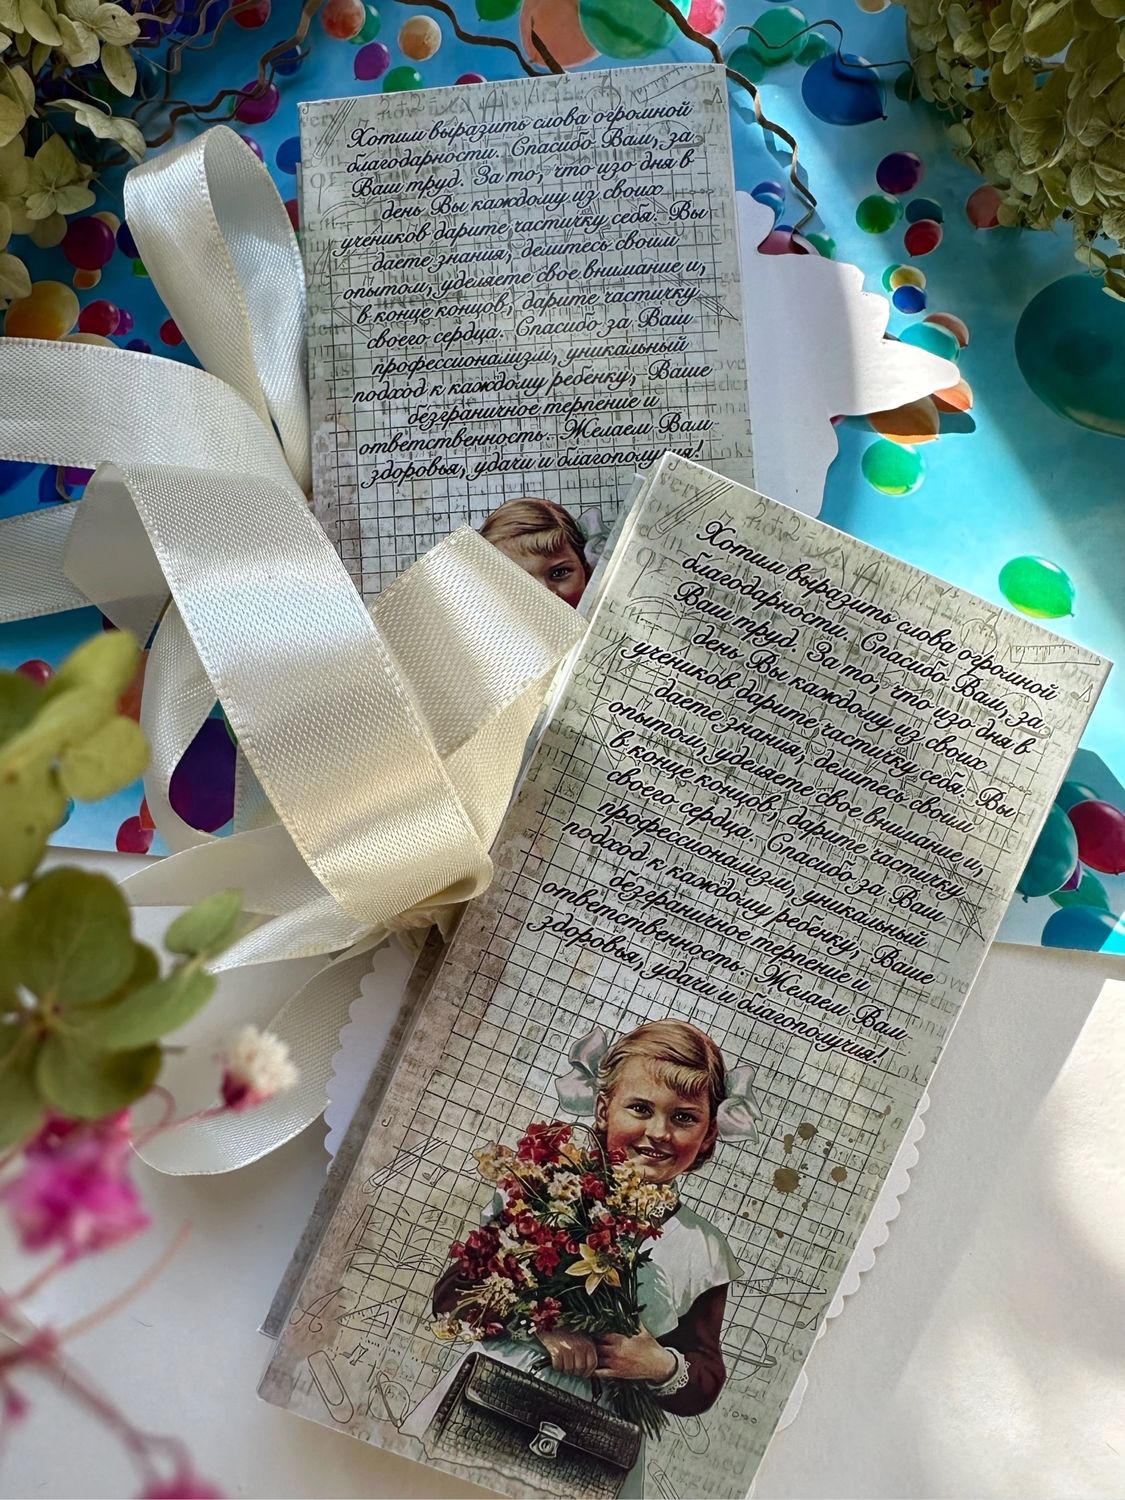 Хотим выразить слова огромной
благодарности. Спасибо Вам, за
Ваш труд. За то, что изо дня в
день Вы каждому из своих
учеников дарите частичку себя. Вы
даете знания, делитесь своим
опытом, уделяете свое внимание и,
в конце концов, дарите частичку
своего сердца. Спасибо за Ваш
профессионализм, уникальный
подход к каждому ребенку, Ваше
безграничное терпение и
ответственность. Желаем Вам
здоровья, удачи и благополучия!
Хотим выразить слова огромной
благодарности. Спасибо Вам, за
Ваш труд. За то, что изо дня в
день Вы каждому из своих
учеников дарите частичку себя. Вы
даете знания, делитесь своим
опытом, уделяете свое внимание и,
в конце концов, дарите частичку
своего сердца. Спасибо за Ваш
профессионализм, уникальный
подход к каждому ребенку, Ваше
безграничное терпение и
ответственность. Желаем Вам
здоровья, удачи и благополучия!